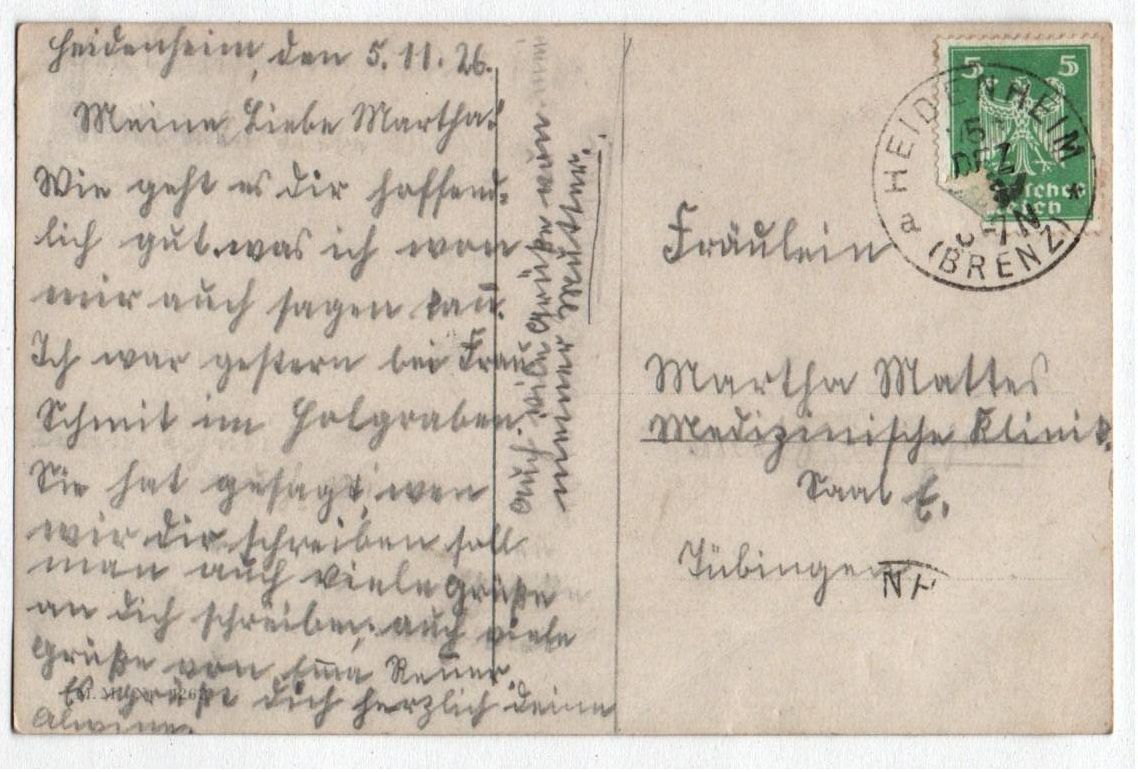 Heidenheim, den 5.11.26.
Meine Liebe Martha!
Wie geht es dir hoffend-
lich gut. was ich von
mir auch sagen kan.
Ich war gestern bei Frau
Schmit im Holgraben.
Sie hat gesagt, wen
wir dir schreiben soll
man auch viele Grüße
an dich schreiben. auch viele
Grüße von Emma Renner.
Es grüßt dich herzlich deine
Alwine.
auch viele Grüße von
meiner Mutter.
5 5
Deutsches
Reich
HEIDENHEIM
(BRENZ)
5
DEZ
a
Fräulein
Martha Mattes
Medizinische Klinik.
Saal E.
Tübingen